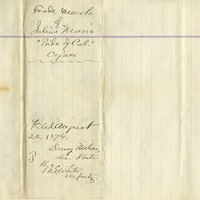 Trade mark
of
Julius
"Pride of Cal."
Cigars
Filed August
22, 1874.
Drury Melone
Sec. State
By
Deputy